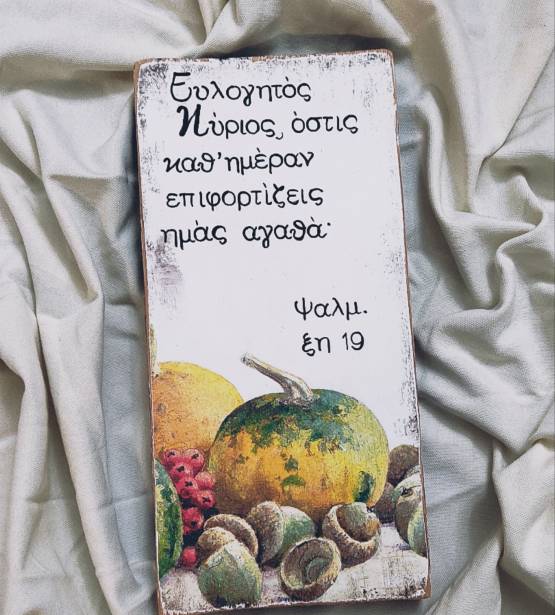 Ευλογητὸς
Κὺριος, ὸστις
καθ'ημὲραν
επιφορτὶζεις
ημὰς αγαθὰ·
ψαλμ.
ξη 19